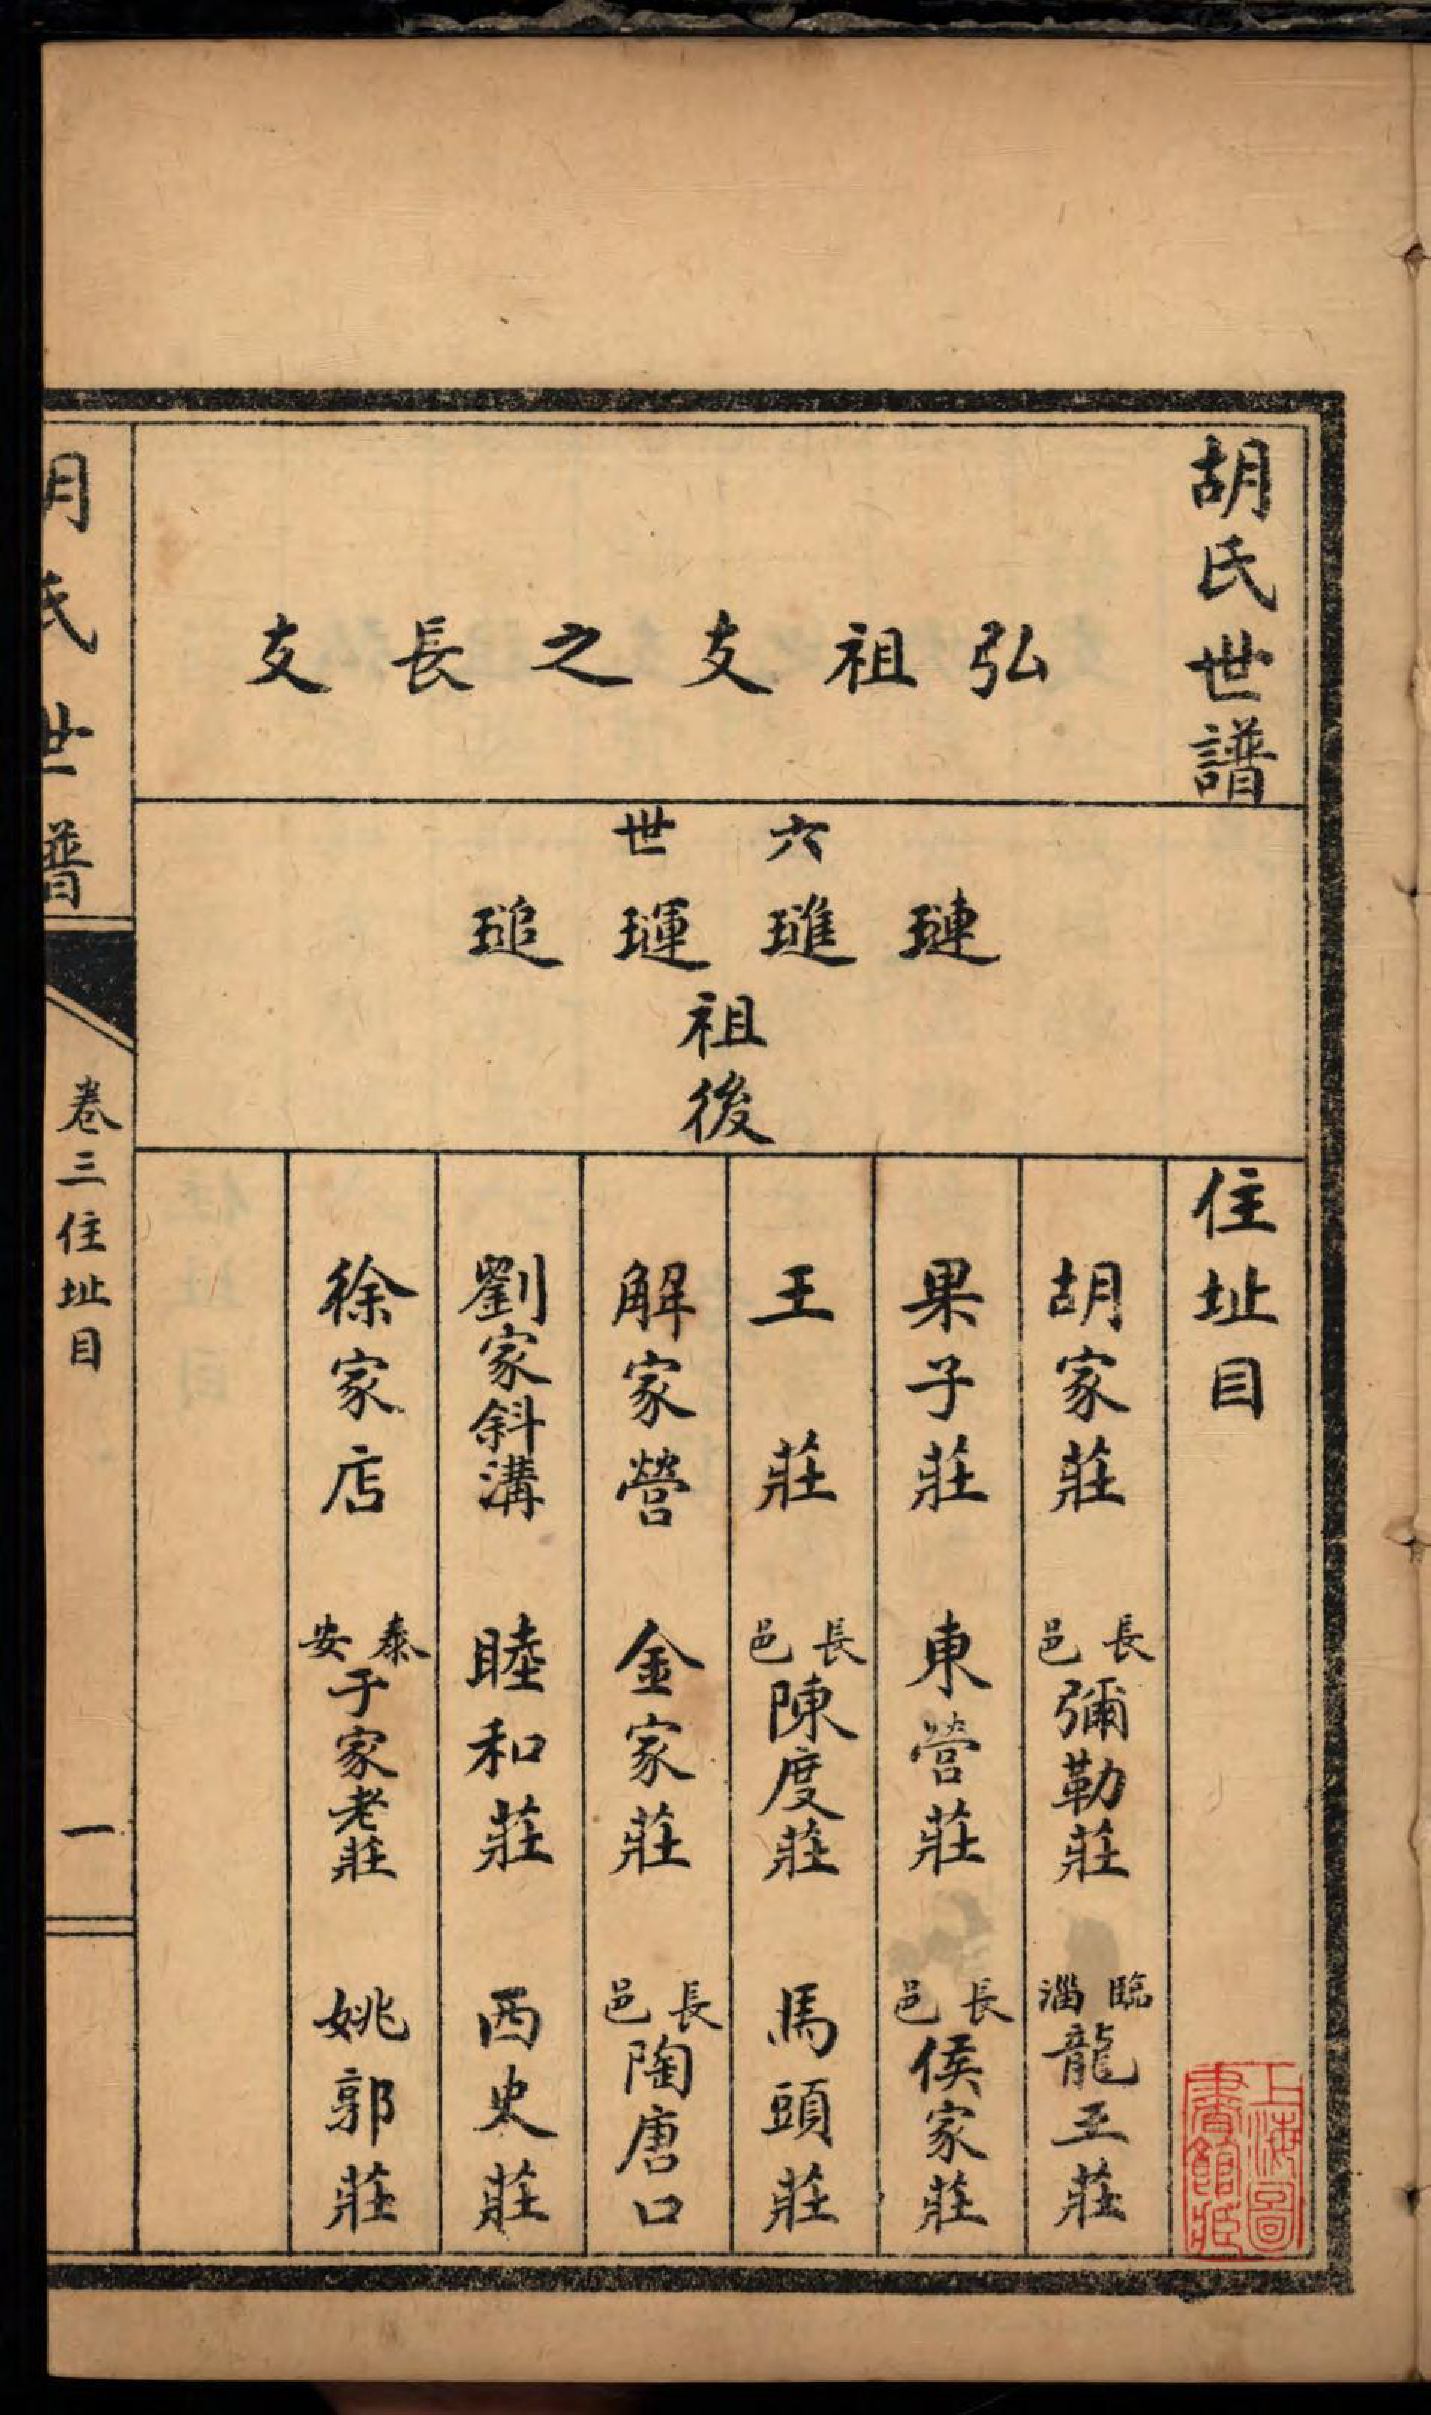 胡氏世譜
住址目
弘祖支之長支
六世
璉璡㻴𤨁
祖後
胡家莊 長邑彌勒莊 臨淄龍王莊
果子莊 東營莊 長邑侯家莊
王莊 長邑陳度莊 馬頭莊
解家營 金家莊 長邑陶唐口
劉家斜溝 睦和莊 西史莊
徐家店 泰安于家老莊 姚郭莊
胡氏世譜
卷三住址目
一
上海圖書館藏